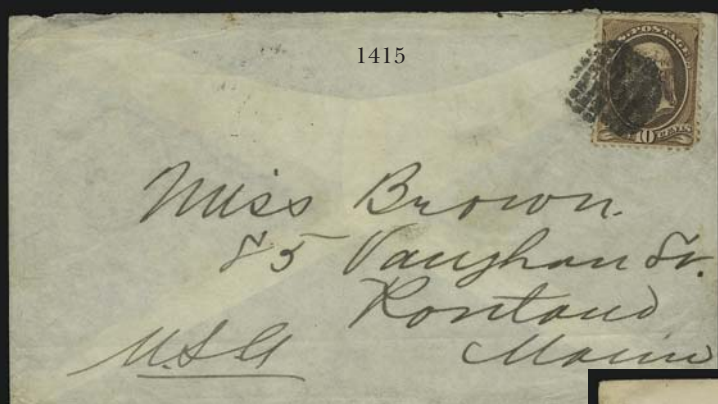 1415
U.S. POSTAGE
10 CENTS
Miss Brown.
85 Vaughan St.
Portland
Maine
U.S.A